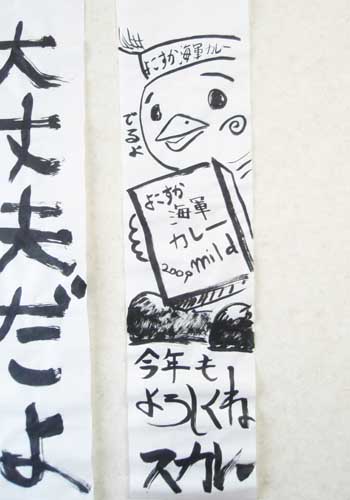 大丈夫だよ
よこすか海軍カレー
でるよ
よこすか
海軍
カレー
200g mild
今年も
よろしくね
スカレー